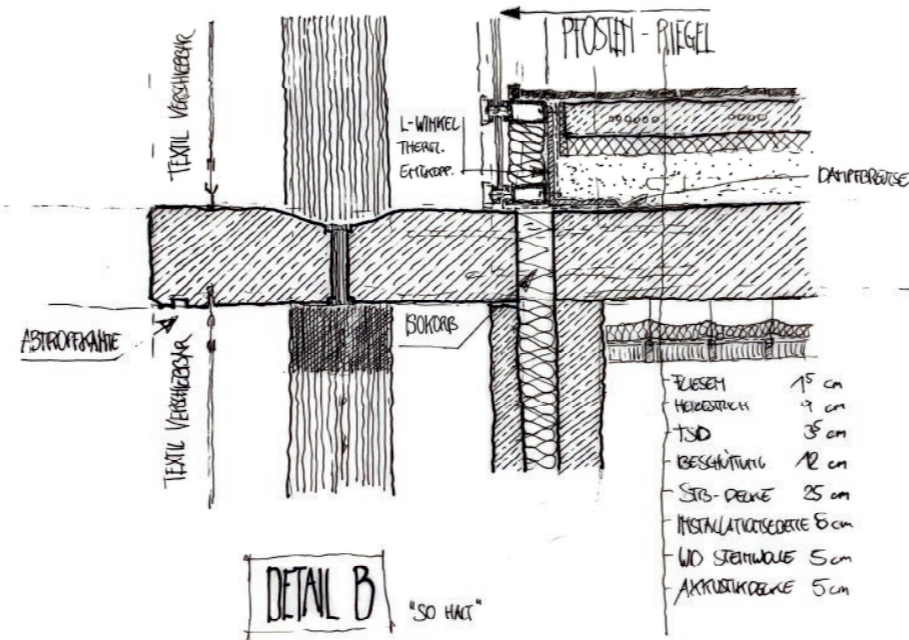 PFOSTEN - RIEGEL
TEXTIL VERSCHIEBBAR
L-WINKEL
THERM.
ENTKOPP.
DAMPFBREMSE
ABTROPFKANTE
TEXTIL VERSCHIEBBAR
ISOKORB
FLIESEN 1⁵ cm
HEIZESTRICH 7 cm
TSD 3⁵ cm
BESCHÜTTUNG 12 cm
STB-DECKE 25 cm
INSTALLATIONSEBENE 6 cm
WD STEINWOLLE 5 cm
AKKUSTIKDECKE 5 cm
DETAIL B
"SO HALT"